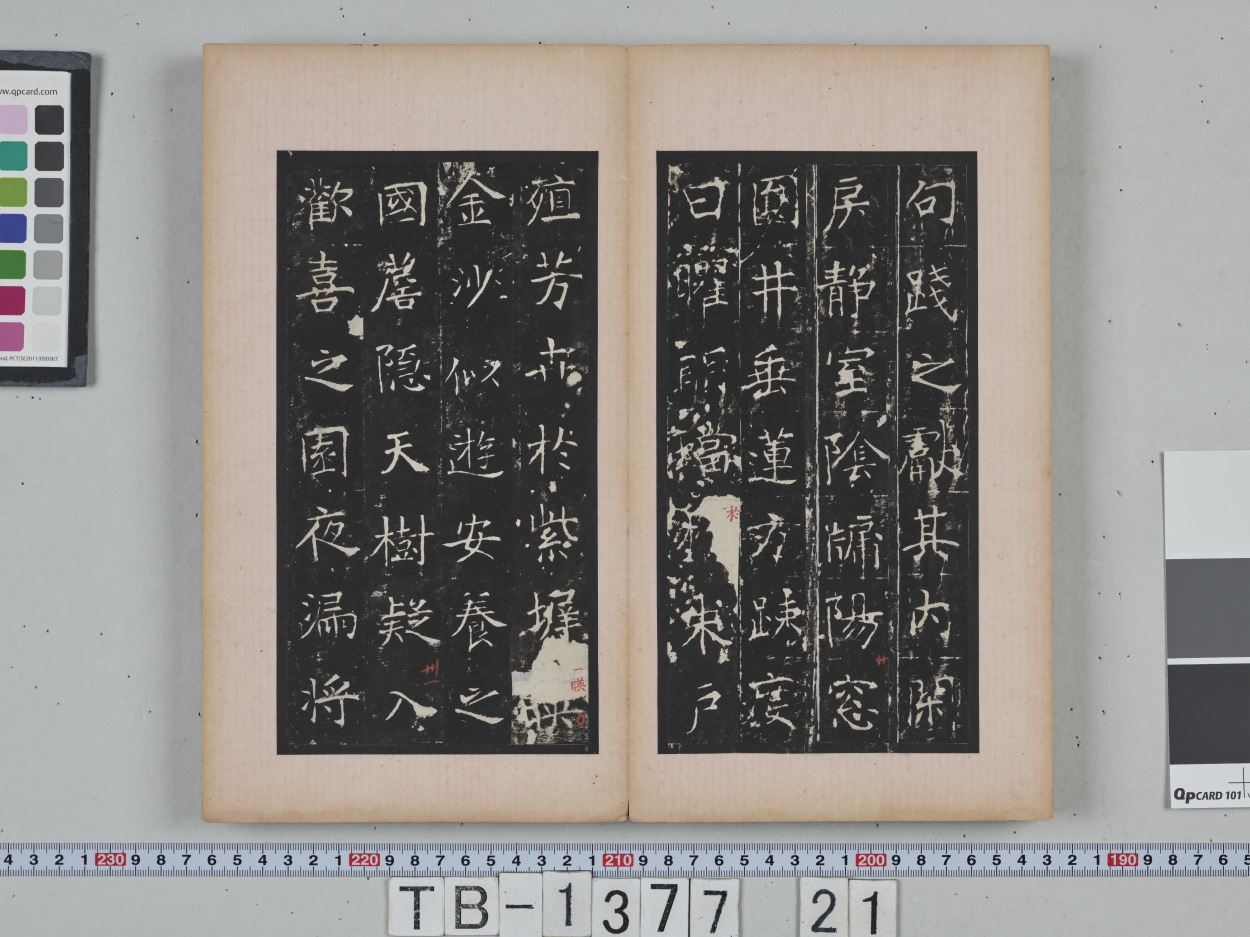 句踐之獻其內閑
房靜室陰牖陽窓
圓井垂蓮方疎度
日曜明璫朱戶
於
殖芳卉於紫墀
映
金沙似遊安養之
國簷隱天樹疑入
歡喜之園夜漏將
www.qpcard.com
QPCARD 101
4 3 2 1 230 9 8 7 6 5 4 3 2 1 220 9 8 7 6 5 4 3 2 1 210 9 8 7 6 5 4 3 2 1 200 9 8 7 6 5 4 3 2 1 190 9 8 7 6 5
TB-1377 21